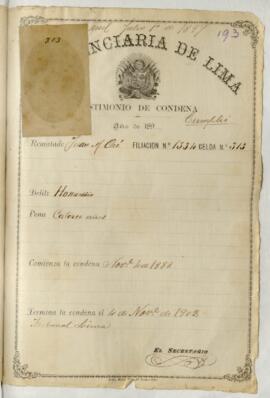 193
313
NCIARIA DE LIMA
STIMONIO DE CONDENA
Año de 189
Cumplió
Rematado Juan M. Oré FILIACION Nº 1334 CELDA N. 313
Delito Homicidio
Pena Catorce años
Comienza la condena Novᵉ 4 de 1888
Termina la condena el 4 de Novᵉ de 1902
Tribunal Lima
EL SECRETARIO